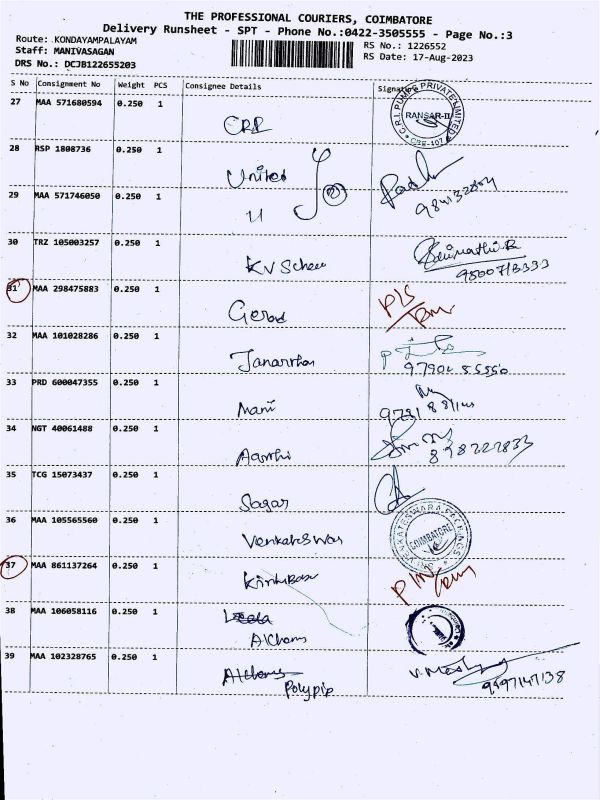 THE PROFESSIONAL COURIERS, COIMBATORE
Delivery Runsheet - SPT - Phone No.:0422-3505555 - Page No.:3
Route: KONDAYAMPALAYAM
RS No.: 1226552
Staff: MANIVASAGAN
RS Date: 17-Aug-2023
DRS No.: DCJB122655203
S No Consignment No Weight PCS Consignee Details Signature
27 MAA 571680594 0.250 1
C.R.I. PUMPS PRIVATE LIMITED
RANSAR-II
CBE-107
28 RSP 1808736 0.250 1 United
29 MAA 571746050 0.250 1 11
30 TRZ 105003257 0.250 1 KV Schem
31 MAA 298475883 0.250 1
32 MAA 101028286 0.250 1 Janarthan
33 PRD 600047355 0.250 1 Mani
34 NGT 40061488 0.250 1 Aarthi
878222833
35 TCG 15073437 0.250 1 Sagar
36 MAA 105565560 0.250 1 Venkateswar
SRI VENKATESWARA PACKINGS
COIMBATORE
37 MAA 861137264 0.250 1
38 MAA 106058116 0.250 1 Leela
Alchams
39 MAA 102328765 0.250 1 Alchams
Polypip
9597147138